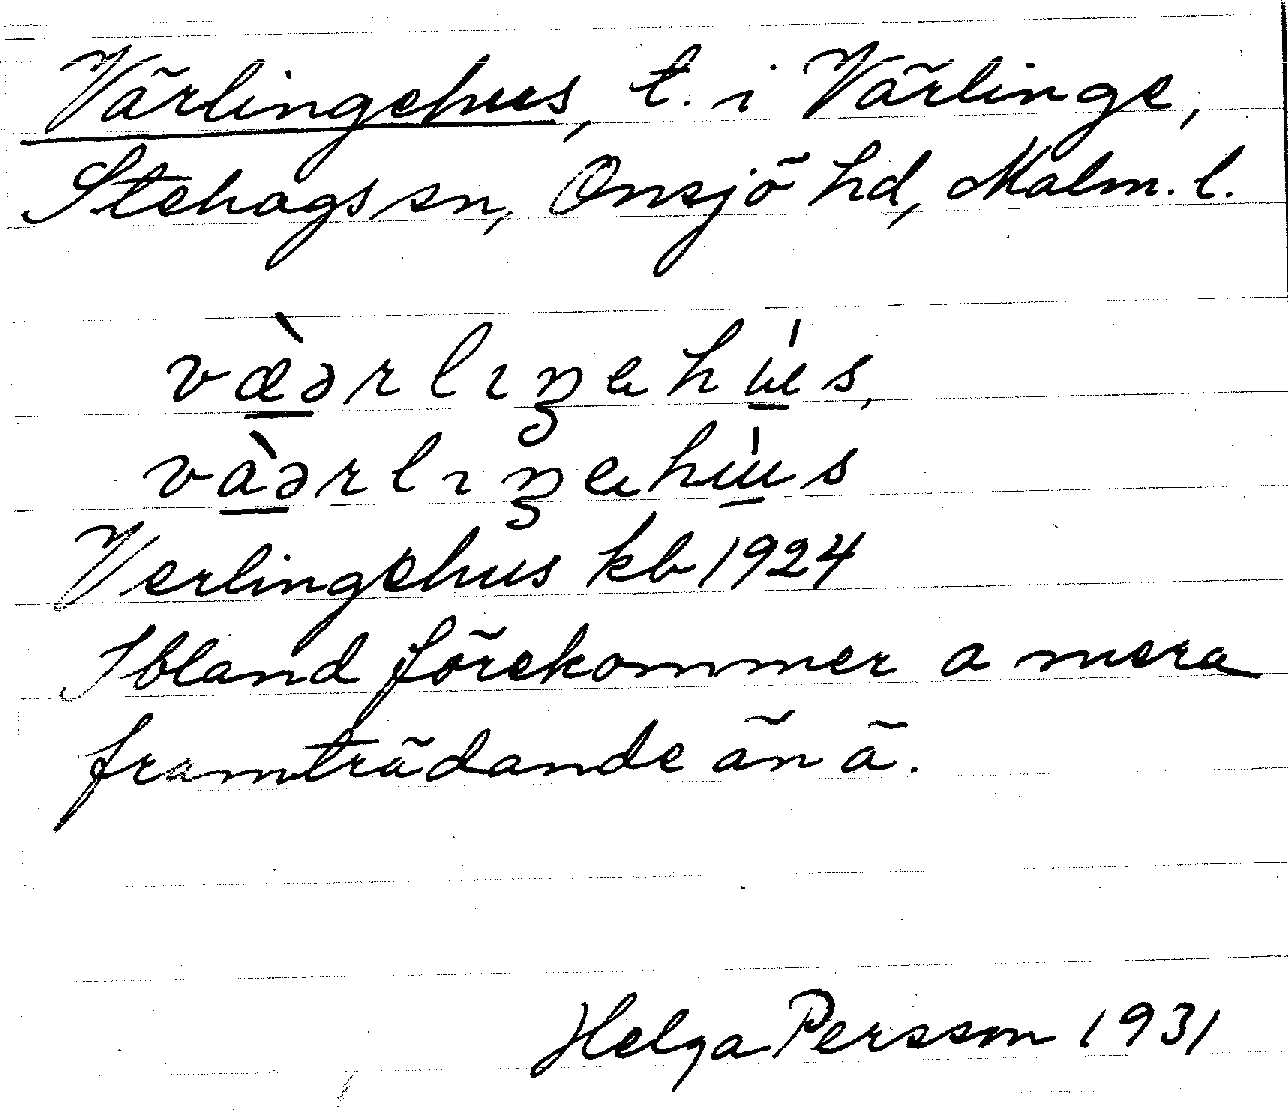 Värlingehus, t. i Värlinge,
Stehags sn, Onsjö hd, Malm. l.
væ̀ərlıŋɐhɯ́s,
vàərlıŋɐhɯ́s
Verlingehus kb 1924
Ibland förekommer a mera
framträdande än ä.
Helga Persson 1931